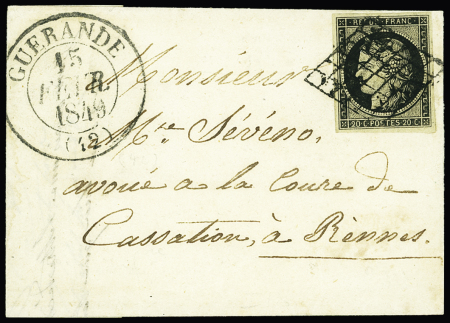 GUERANDE
15
FEVR.
1849
(42)
REPUB. FRANC.
20 C. POSTES 20 C.
Monsieur
Me. Sévéno,
avoué a la Coure de
Cassation, à Rènnes.